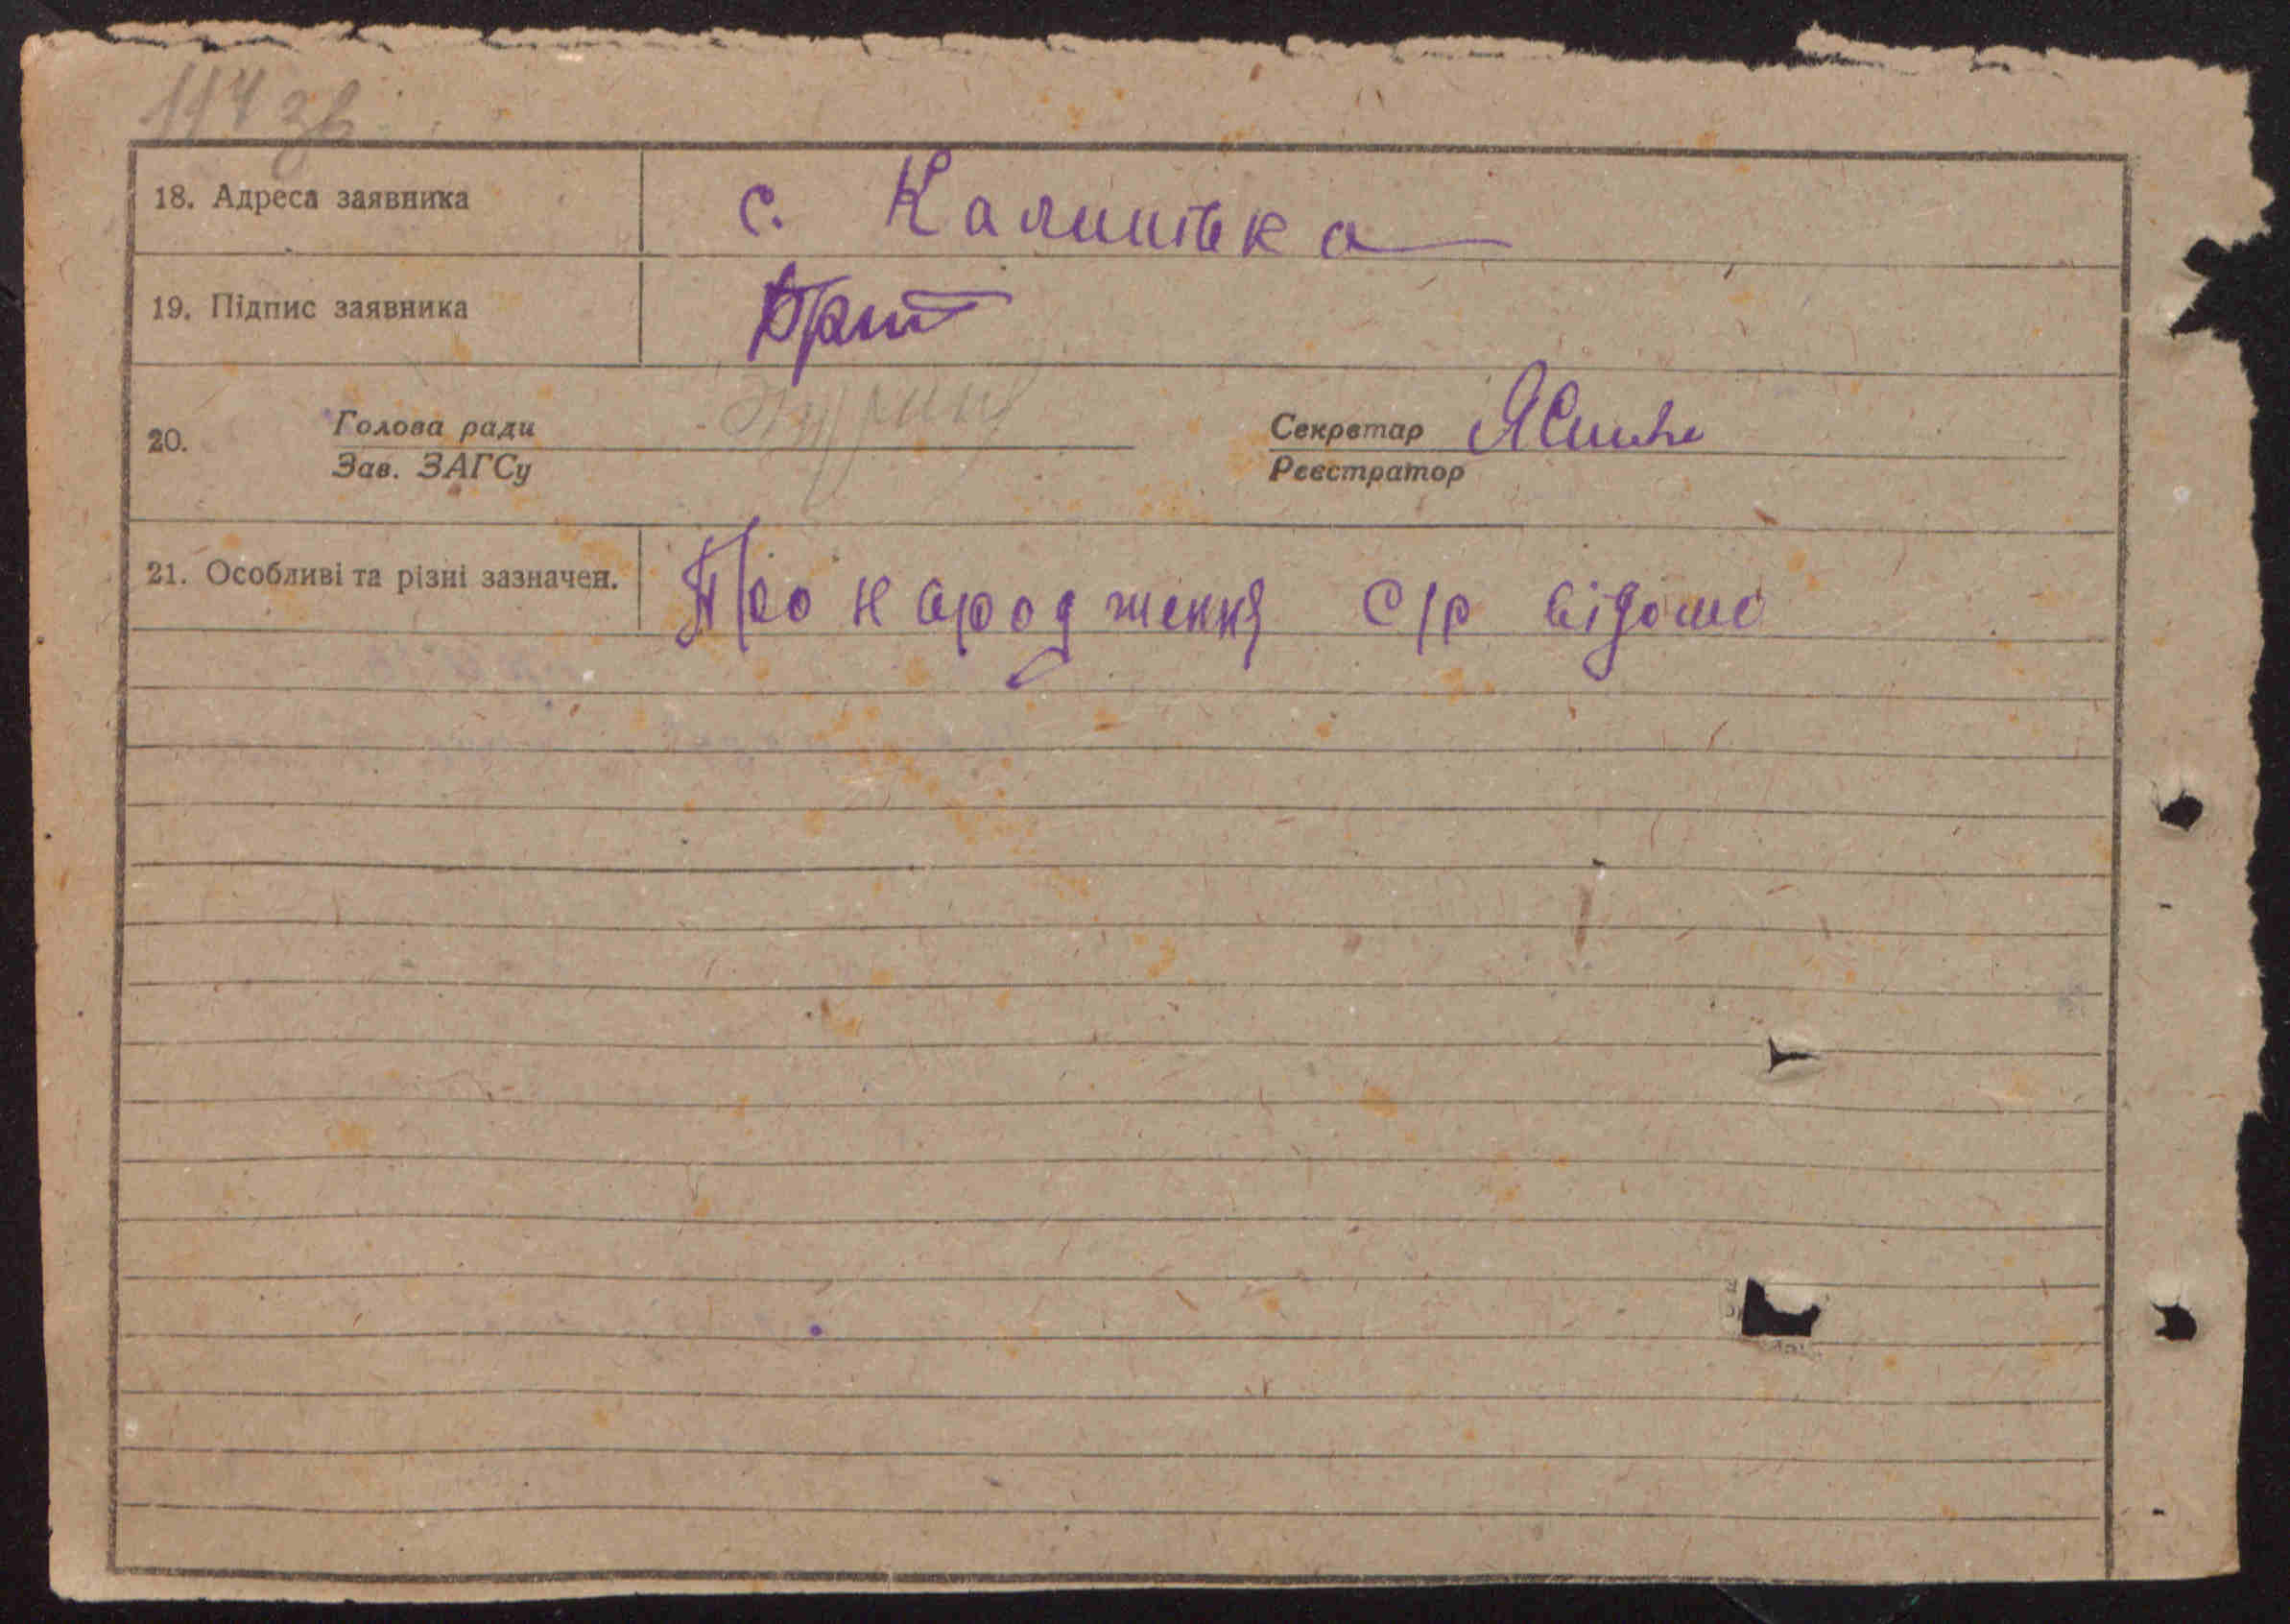 114 зв
18. Адреса заявника с. Калинівка
19. Підпис заявника
20. Голова ради Секретар
Зав. ЗАГСу Реєстратор
21. Особливі та різні зазначен. Про народження с/р відомо